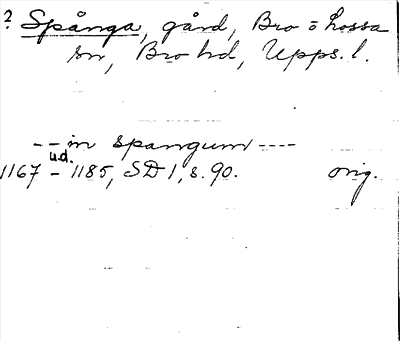 ? Spånga, gård, Bro o Lossa
sn, Bro hd, Upps. l.
-- in spangum ----
u.d.
1167 - 1185, SD 1, s. 90. orig.